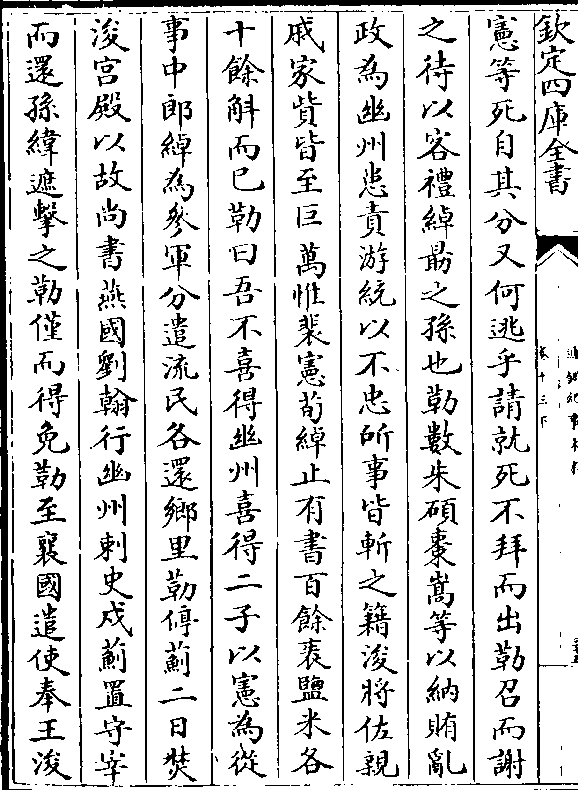 欽定四庫全書
憲等死自其分又何逃乎請就死不拜而出勒召而謝
之待以客禮綽勗之孫也勒數朱碩棗嵩等以納賄亂
政為幽州患責游統以不忠所事皆斬之籍浚將佐親
戚家貲皆至巨萬惟裴憲荀綽止有書百餘袠鹽米各
十餘斛而已勒曰吾不喜得幽州喜得二子以憲為從
事中郎綽為參軍分遣流民各還鄉里勒停薊二日焚
浚宫殿以故尚書燕國劉翰行幽州刺史戍薊置守宰
而還孫緯遮擊之勒僅而得免勒至襄國遣使奉王浚